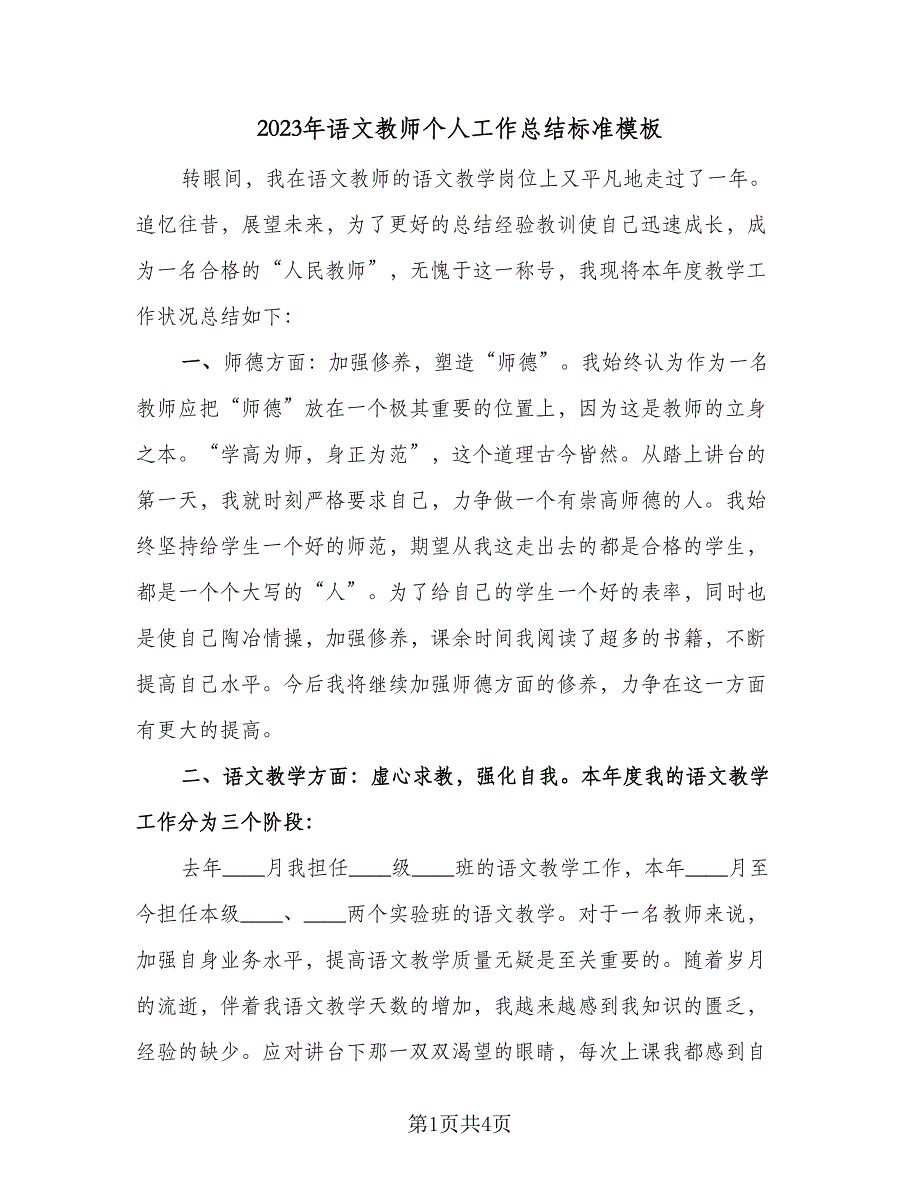 2023年语文教师个人工作总结标准模板
转眼间，我在语文教师的语文教学岗位上又平凡地走过了一年。
追忆往昔，展望未来，为了更好的总结经验教训使自己迅速成长，成
为一名合格的“人民教师”，无愧于这一称号，我现将本年度教学工
作状况总结如下：
一、师德方面：加强修养，塑造“师德”。我始终认为作为一名
教师应把“师德”放在一个极其重要的位置上，因为这是教师的立身
之本。“学高为师，身正为范”，这个道理古今皆然。从踏上讲台的
第一天，我就时刻严格要求自己，力争做一个有崇高师德的人。我始
终坚持给学生一个好的师范，期望从我这走出去的都是合格的学生，
都是一个个大写的“人”。为了给自己的学生一个好的表率，同时也
是使自己陶冶情操，加强修养，课余时间我阅读了超多的书籍，不断
提高自己水平。今后我将继续加强师德方面的修养，力争在这一方面
有更大的提高。
二、语文教学方面：虚心求教，强化自我。本年度我的语文教学
工作分为三个阶段：
去年____月我担任____级____班的语文教学工作，本年____月至
今担任本级____、____两个实验班的语文教学。对于一名教师来说，
加强自身业务水平，提高语文教学质量无疑是至关重要的。随着岁月
的流逝，伴着我语文教学天数的增加，我越来越感到我知识的匮乏，
经验的缺少。应对讲台下那一双双渴望的眼睛，每次上课我都感到自
第1页共4页